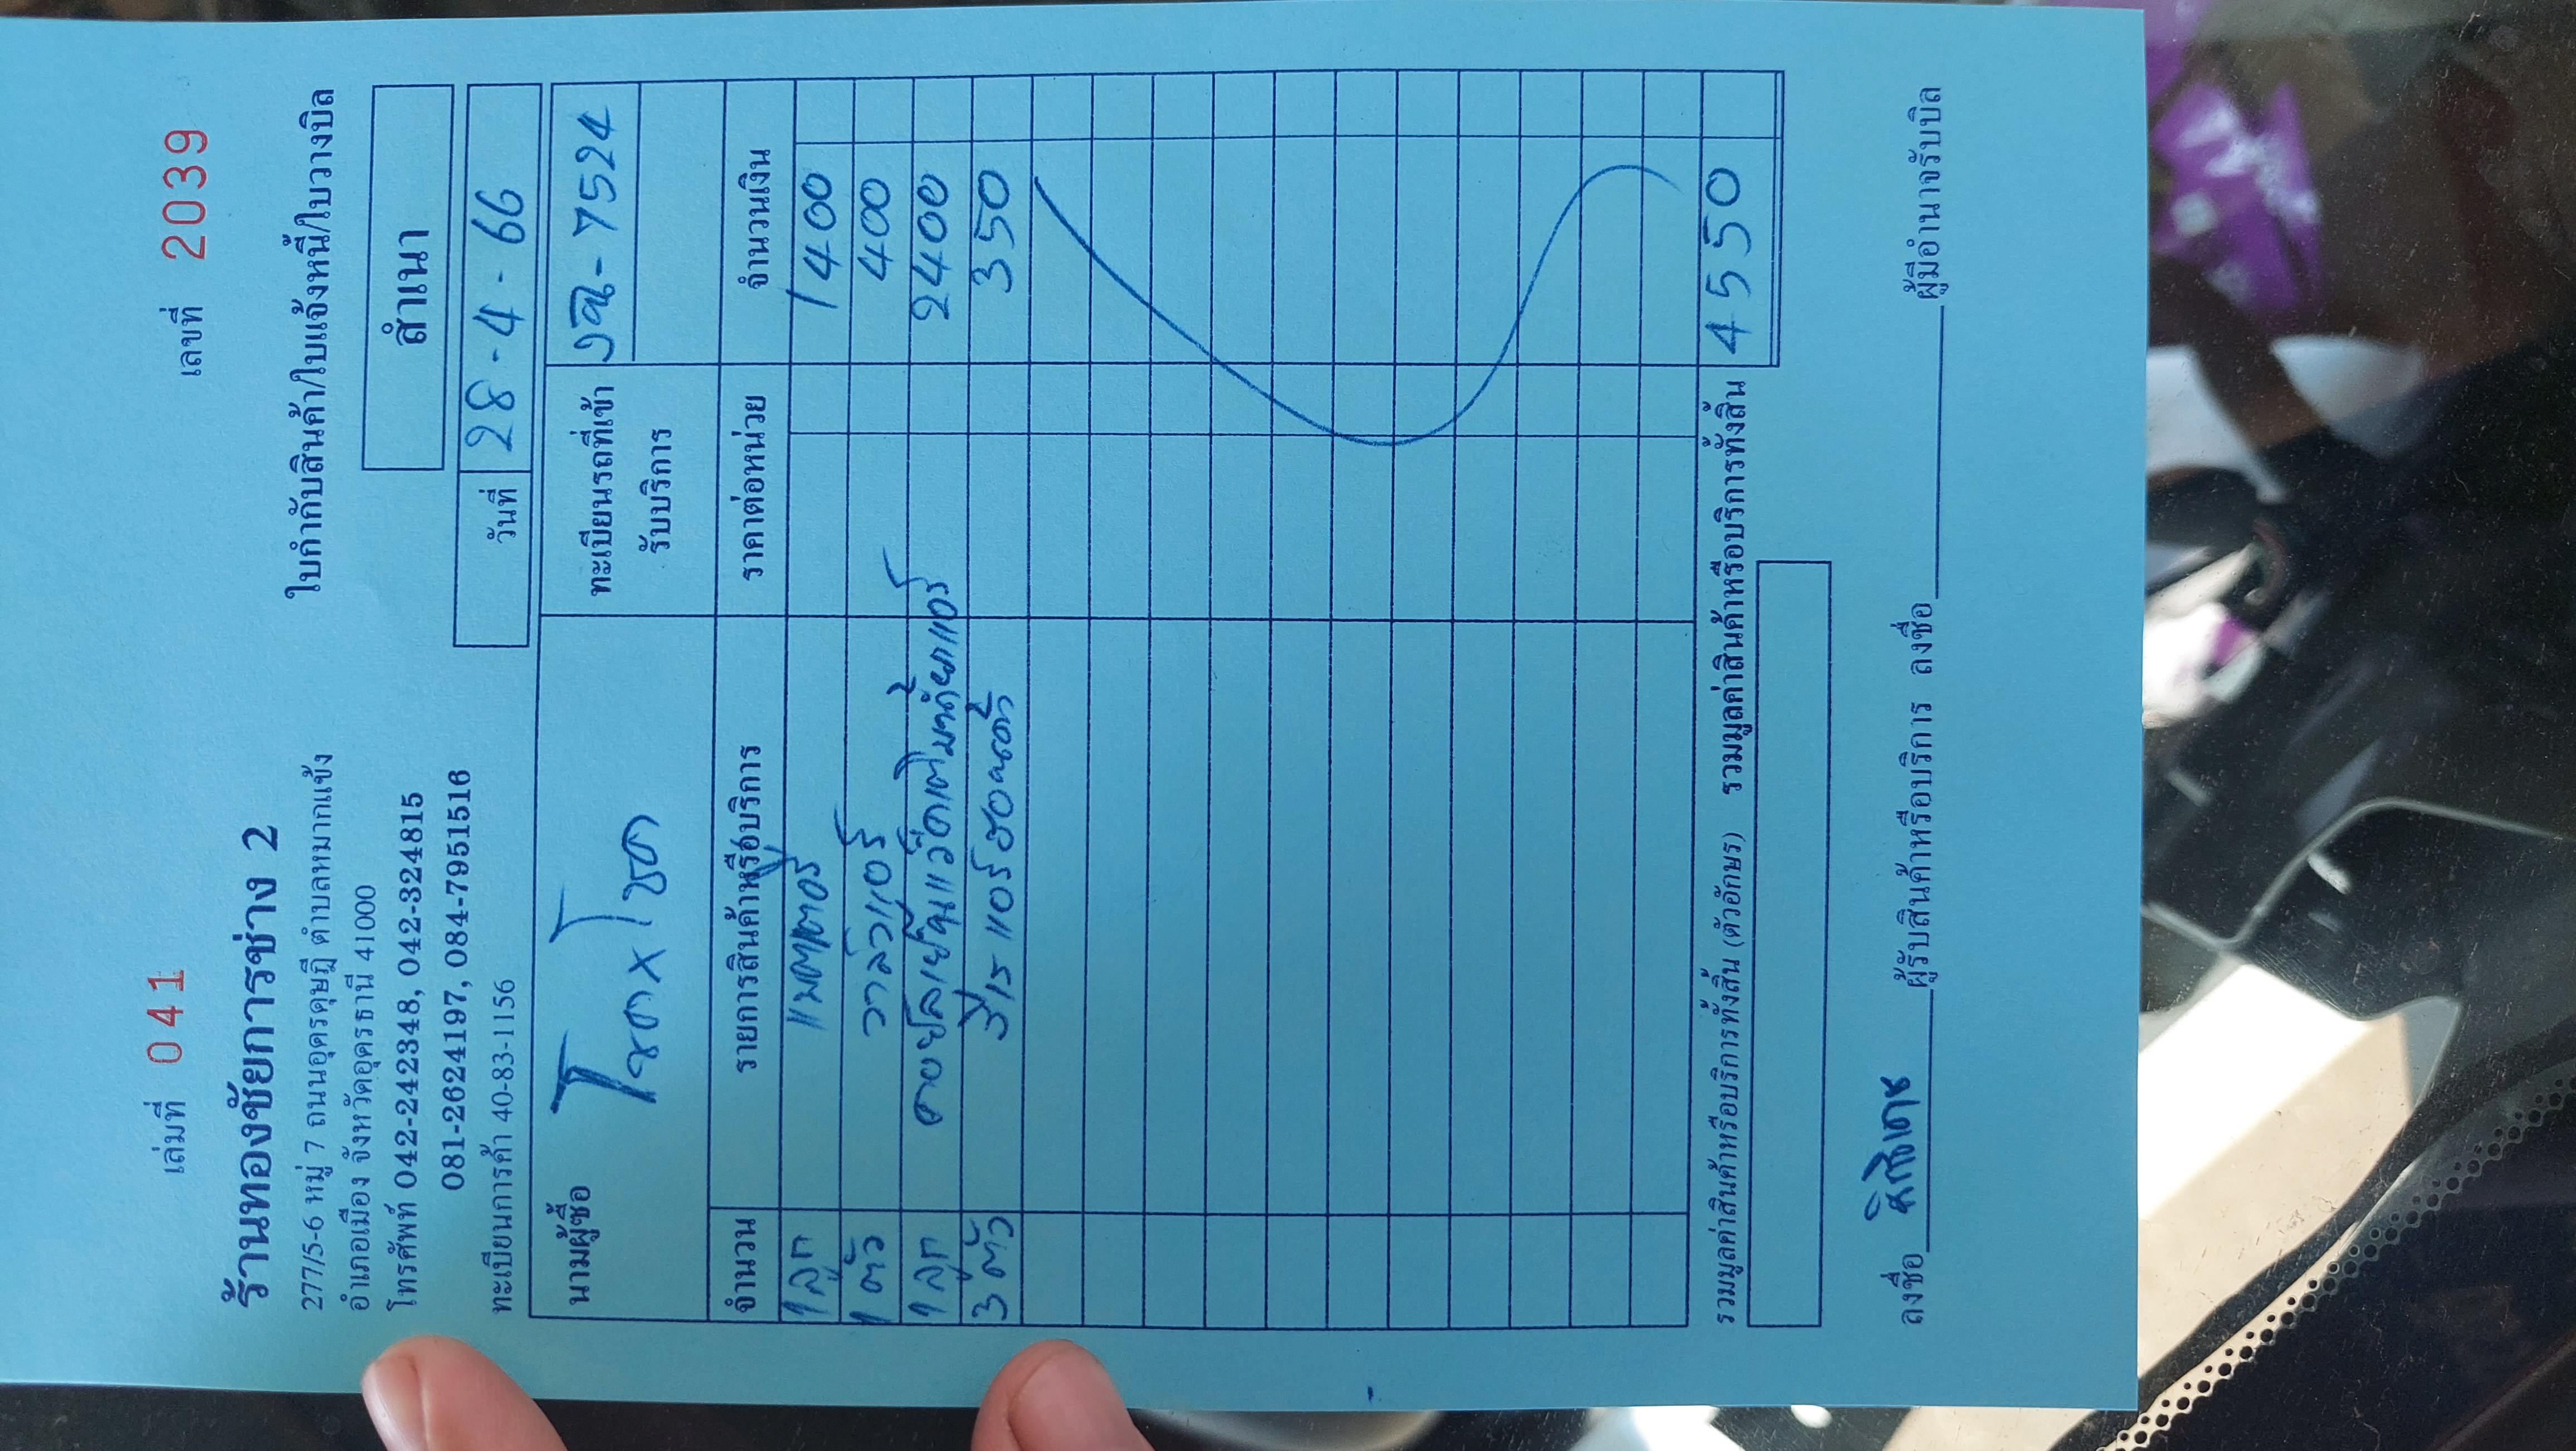 เล่มที่ 041 เลขที่ 2039
ร้านทองชัยการช่าง 2
277/5-6 หมู่ 7 ถนนอุดรดุษฎี ตำบลหมากแข้ง
อำเภอเมือง จังหวัดอุดรธานี 41000
โทรศัพท์ 042-242348, 042-324815
081-2624197, 084-7951516
ทะเบียนการค้า 40-83-1156
ใบกำกับสินค้า/ใบแจ้งหนี้/ใบวางบิล
สำเนา
วันที่ 28-4-66
นามผู้ซื้อ
ทะเบียนรถที่เข้ารับบริการ 7524
จำนวน รายการสินค้าหรือบริการ ราคาต่อหน่วย จำนวนเงิน
1 ลูก 1400
1 ตัว วาล์วแอร์ 400
1 ลูก 2400
3 ตัว 350
รวมมูลค่าสินค้าหรือบริการทั้งสิ้น (ตัวอักษร) รวมมูลค่าสินค้าหรือบริการทั้งสิ้น 4550
ลงชื่อ ผู้รับสินค้าหรือบริการ ลงชื่อ ผู้มีอำนาจรับบิล